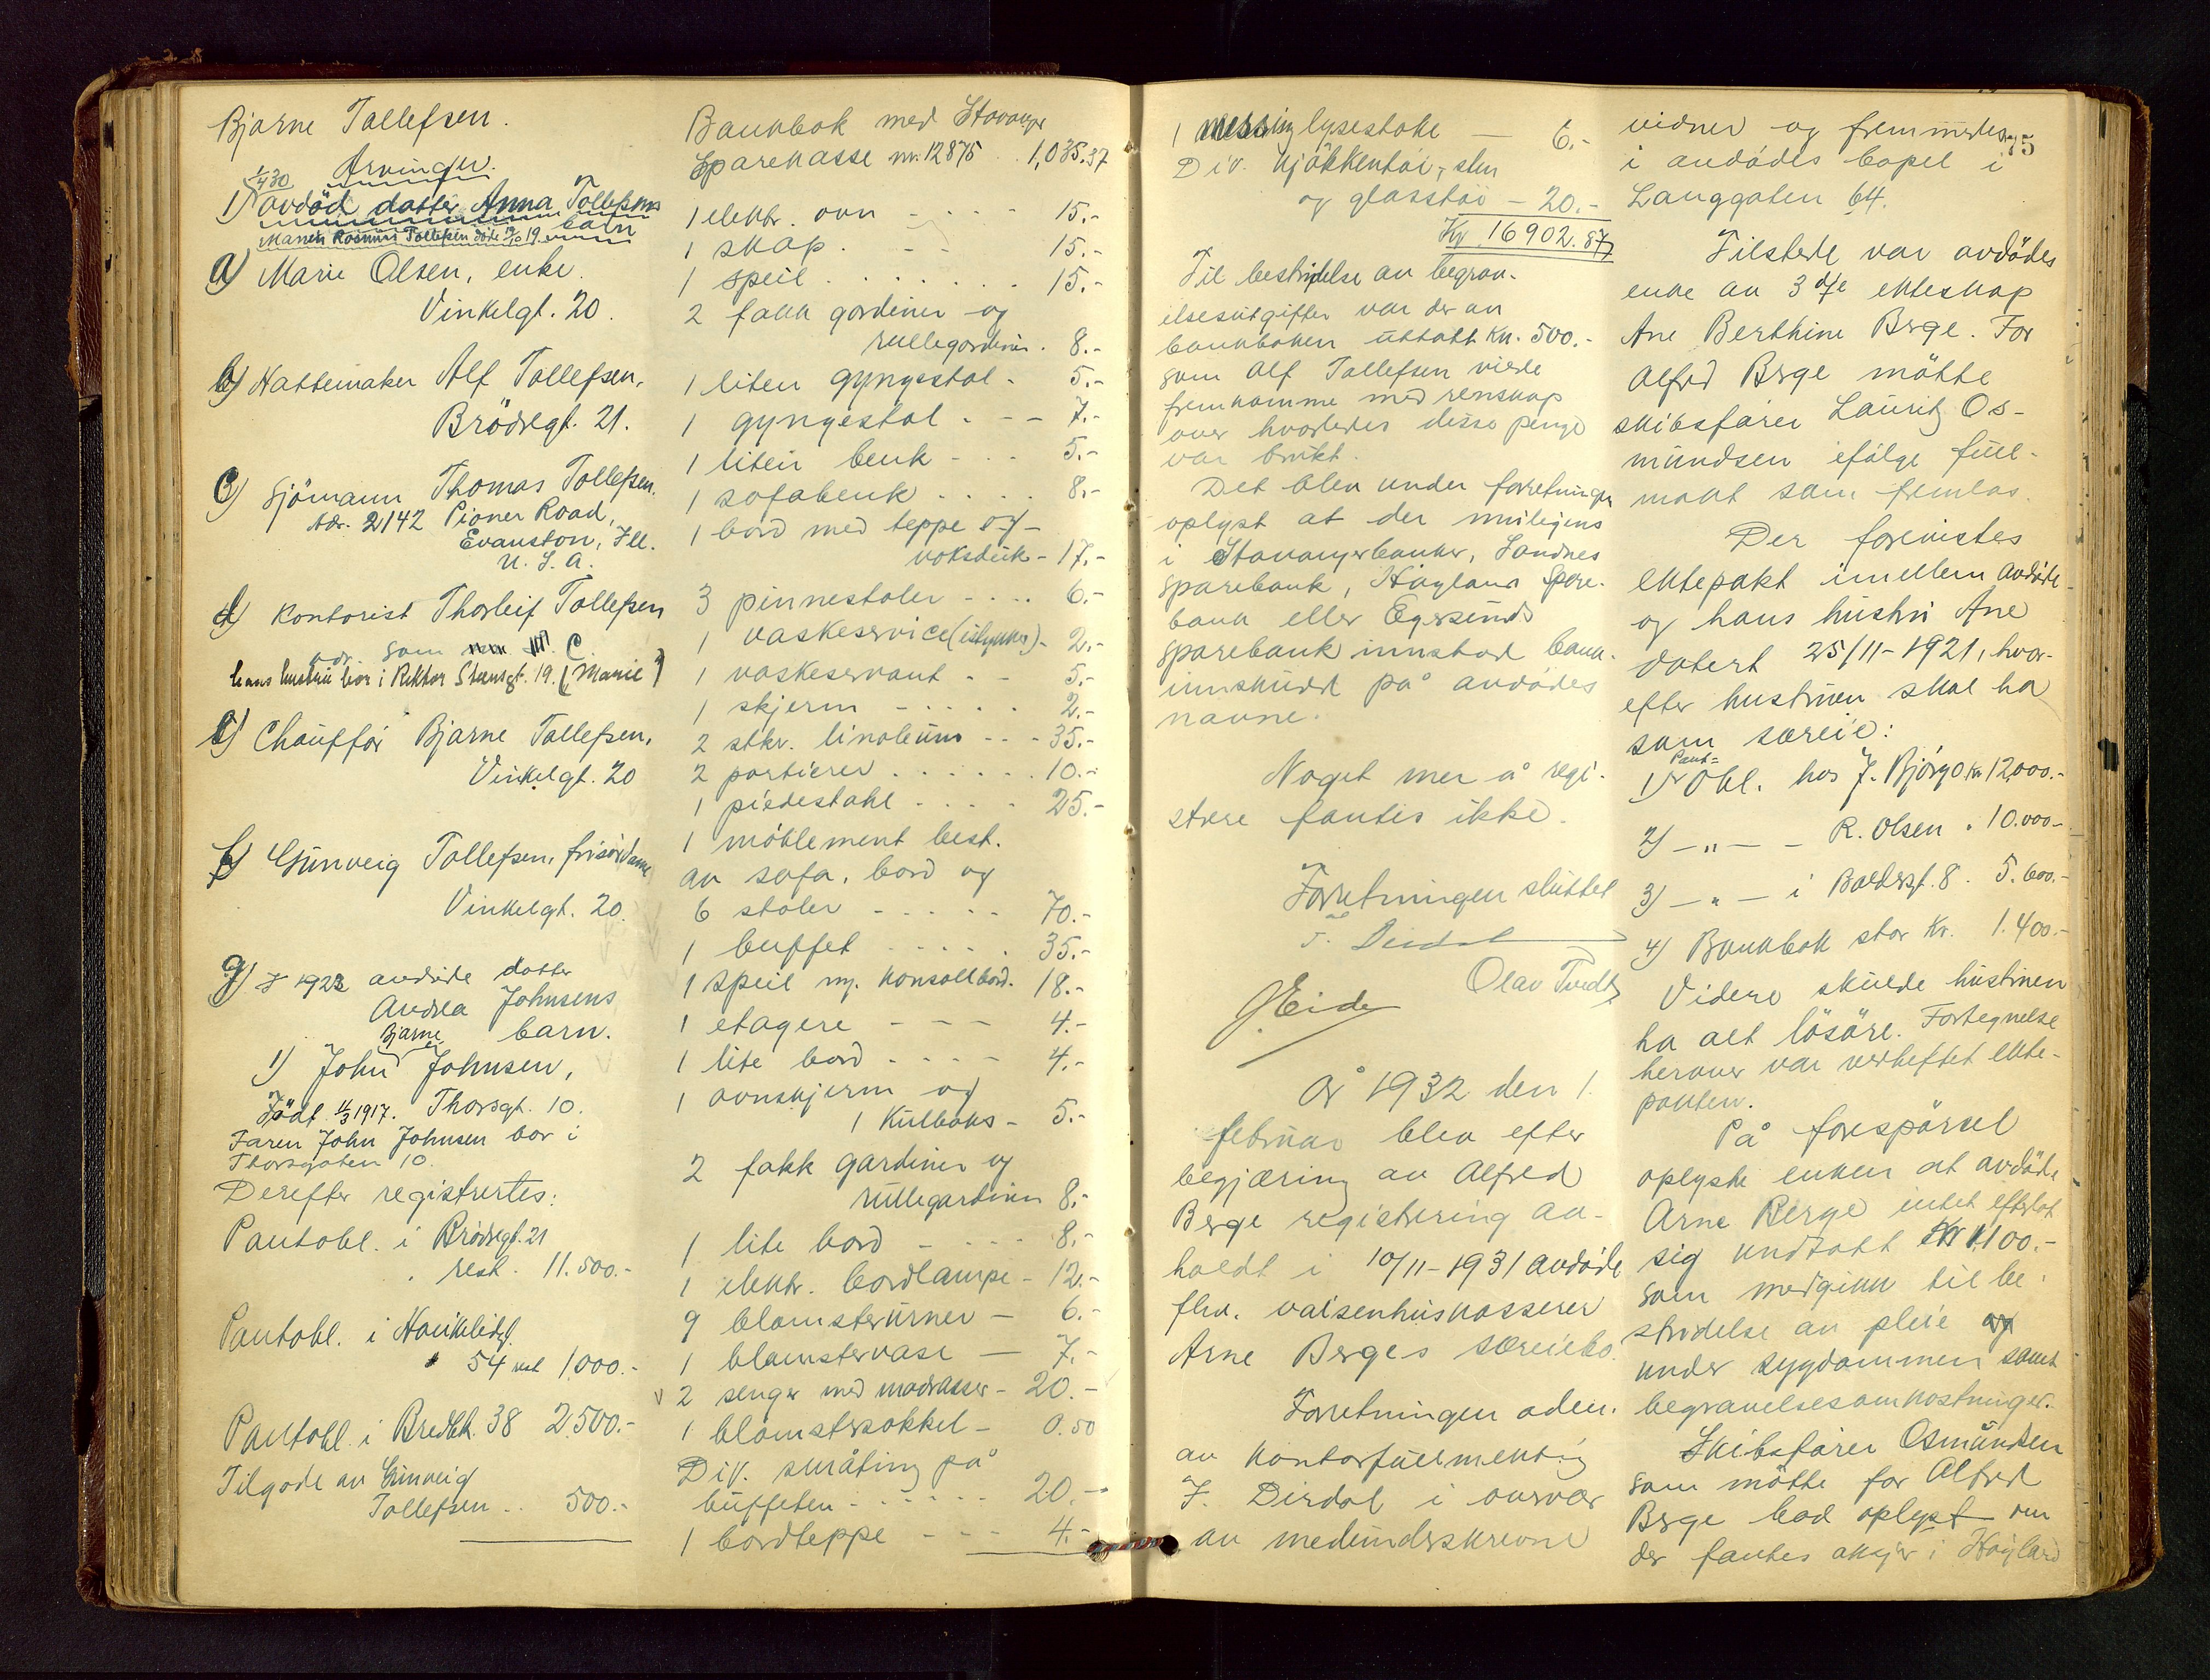 Bjarne Tollefsen.
Arvinger.
1/4 30
1) avdöd datter Anna Tollefsens
barn
Manen Rasmus Tollefsen döde 19/10 19.
a) Marie Olsen, enke.
Vinkelgt. 20.
b) Hattemaker Alf Tollefsen,
Brödregt. 21.
c) Sjömann Thomas Tollefsen.
Adr. 2142 Pioner Road,
Evanston, Ill.
U. S. A.
d) Kontorist Thorleif Tollefsen
adr. som C.
hans hustru bor i Rektor Steensgt. 19. (Marie)
e) Chauffør Bjarne Tollefsen,
Vinkelgt. 20
f) Gunveig Tollefsen, frisördame
Vinkelgt. 20.
g) I 1922 avdöde datter
Andrea Johnsens
barn.
1) John Bjarne Johnsen,
Född 11/3 1917. Thorsgt. 10.
Faren John Johnsen bor i
Thorsgaten 10.
Derefter registrertes:
Pantobl. i Brödregt. 21
rest. 11.500.-
Pantobl. i Haukeligt.
54 rest 1000.-
Pantobl. i Bredbk. 38 2500.-
Tilgode av Gunveig
Tollefsen .. 500.-
Bankbok med Stavanger
Sparekasse nr. 12875 .. 1,035.37
1 elektr. ovn - - - - 15.-
1 skap. - - 15.-
1 speil . . . . . . . 15.-
2 fakk gardiner og
rullegardiner. 8.-
1 liten gyngestol - 5.-
1 gyngestol - - - 7.-
1 liten benk - - - 5.-
1 sofabenk . . . . 8.-
1 bord med teppe og
voksduk - 17.-
3 pinnestoler - . . . 6.-
1 vaskeservice (istykker) - 2.-
1 vaskeservant - - 5.-
1 skjerm - . . . . 2.-
2 stkr. linoleum - - - 35.-
2 portierer . . . . . . 10.-
1 piedestahl . . . . 25.-
1 möblement best.
av sofa, bord og
6 stoler - - - - - 70.-
1 buffet - . . . . 35.-
1 speil m. konsollbord. 18.-
1 etagere - - - 4.-
1 lite bord - - - - 4.-
1 ovnskjerm og
1 kulboks - 5.-
2 fakk gardiner og
rullegardiner 8.-
1 lite bord - - - - 8.-
1 elektr. bordlampe - 12.-
9 blomsterurner - 6.-
1 blomstervase - 7.-
v 2 senger med madrasser - 20.-
1 blomstersokkel - 0.50
Div. småting på
buffeten - - - - - 20.-
1 bordteppe - - - 4.-
1 messing lysestake - 6.-
Div. kjökkentöi, sten
og glasstöi - 20.-
Kr 16902.87
Til bestridelse av begrav-
elsesutgifter var der av
bankboken uttatt kr. 500.-
som Alf Tollefsen vilde
fremkomme med renskap
over hvorledes disse penge
var brukt.
Det blev under forretningen
oplyst at der muligens
i Stavangerbanker, Sandnes
sparebank, Höyland Spare-
bank eller Egersunds
sparebank innstod bank-
innskudd på avdödes
navne.
Noget mer å regi-
strere fantes ikke.
Forretningen sluttet
F. Dirdal
Olav Tvedt
G Eide
År 1932 den 1.
februar blev efter
begjæring av Alfred
Berge registrering av-
holdt i 10/11-1931 avdöde
fhv. vaisenhuskasserer
Arne Berges særeiebo.
Forretningen adm.
av kontorfullmektig
F. Dirdal i overvær
av medunderskrevne
75
vidner og fremmedes
i avdödes bopel i
Langgaten 64.
Tilstede var avdödes
enke av 3dje ekteskap
Ane Berthine Berge. For
Alfred Berge mötte
skibsförer Lauritz Os-
mundsen ifölge full-
makt som fremlas.
Der forevistes
ektepakt imellem avdöde
og hans hustru Ane
datert 25/11-1921, hvor-
efter hustruen skal ha
som særeie:
1) Pant= Obl. hos J. Björgo. kr 12,000.-
2) -"- - R. Olsen " 10.000.-
3) -"- i Baldersgt. 8. 5.600.-
4) Bankbok stor kr. 1.400.-
Videre skulde hustruen
ha alt lösöre. Fortegnelse
herover var verheftet ekte-
pakten.
På forespörsel
oplyste enken at avdöde
Arne Berge intet efterlot
sig undtatt kr 1100.-
som medgikk til be-
stridelse av pleie og
under sygdommen samt
begravelsesomkostninger.
Skibsförer Osmundsen
som mötte for Alfred
Berge bad oplyst om
der fantes aksjer i Höyland